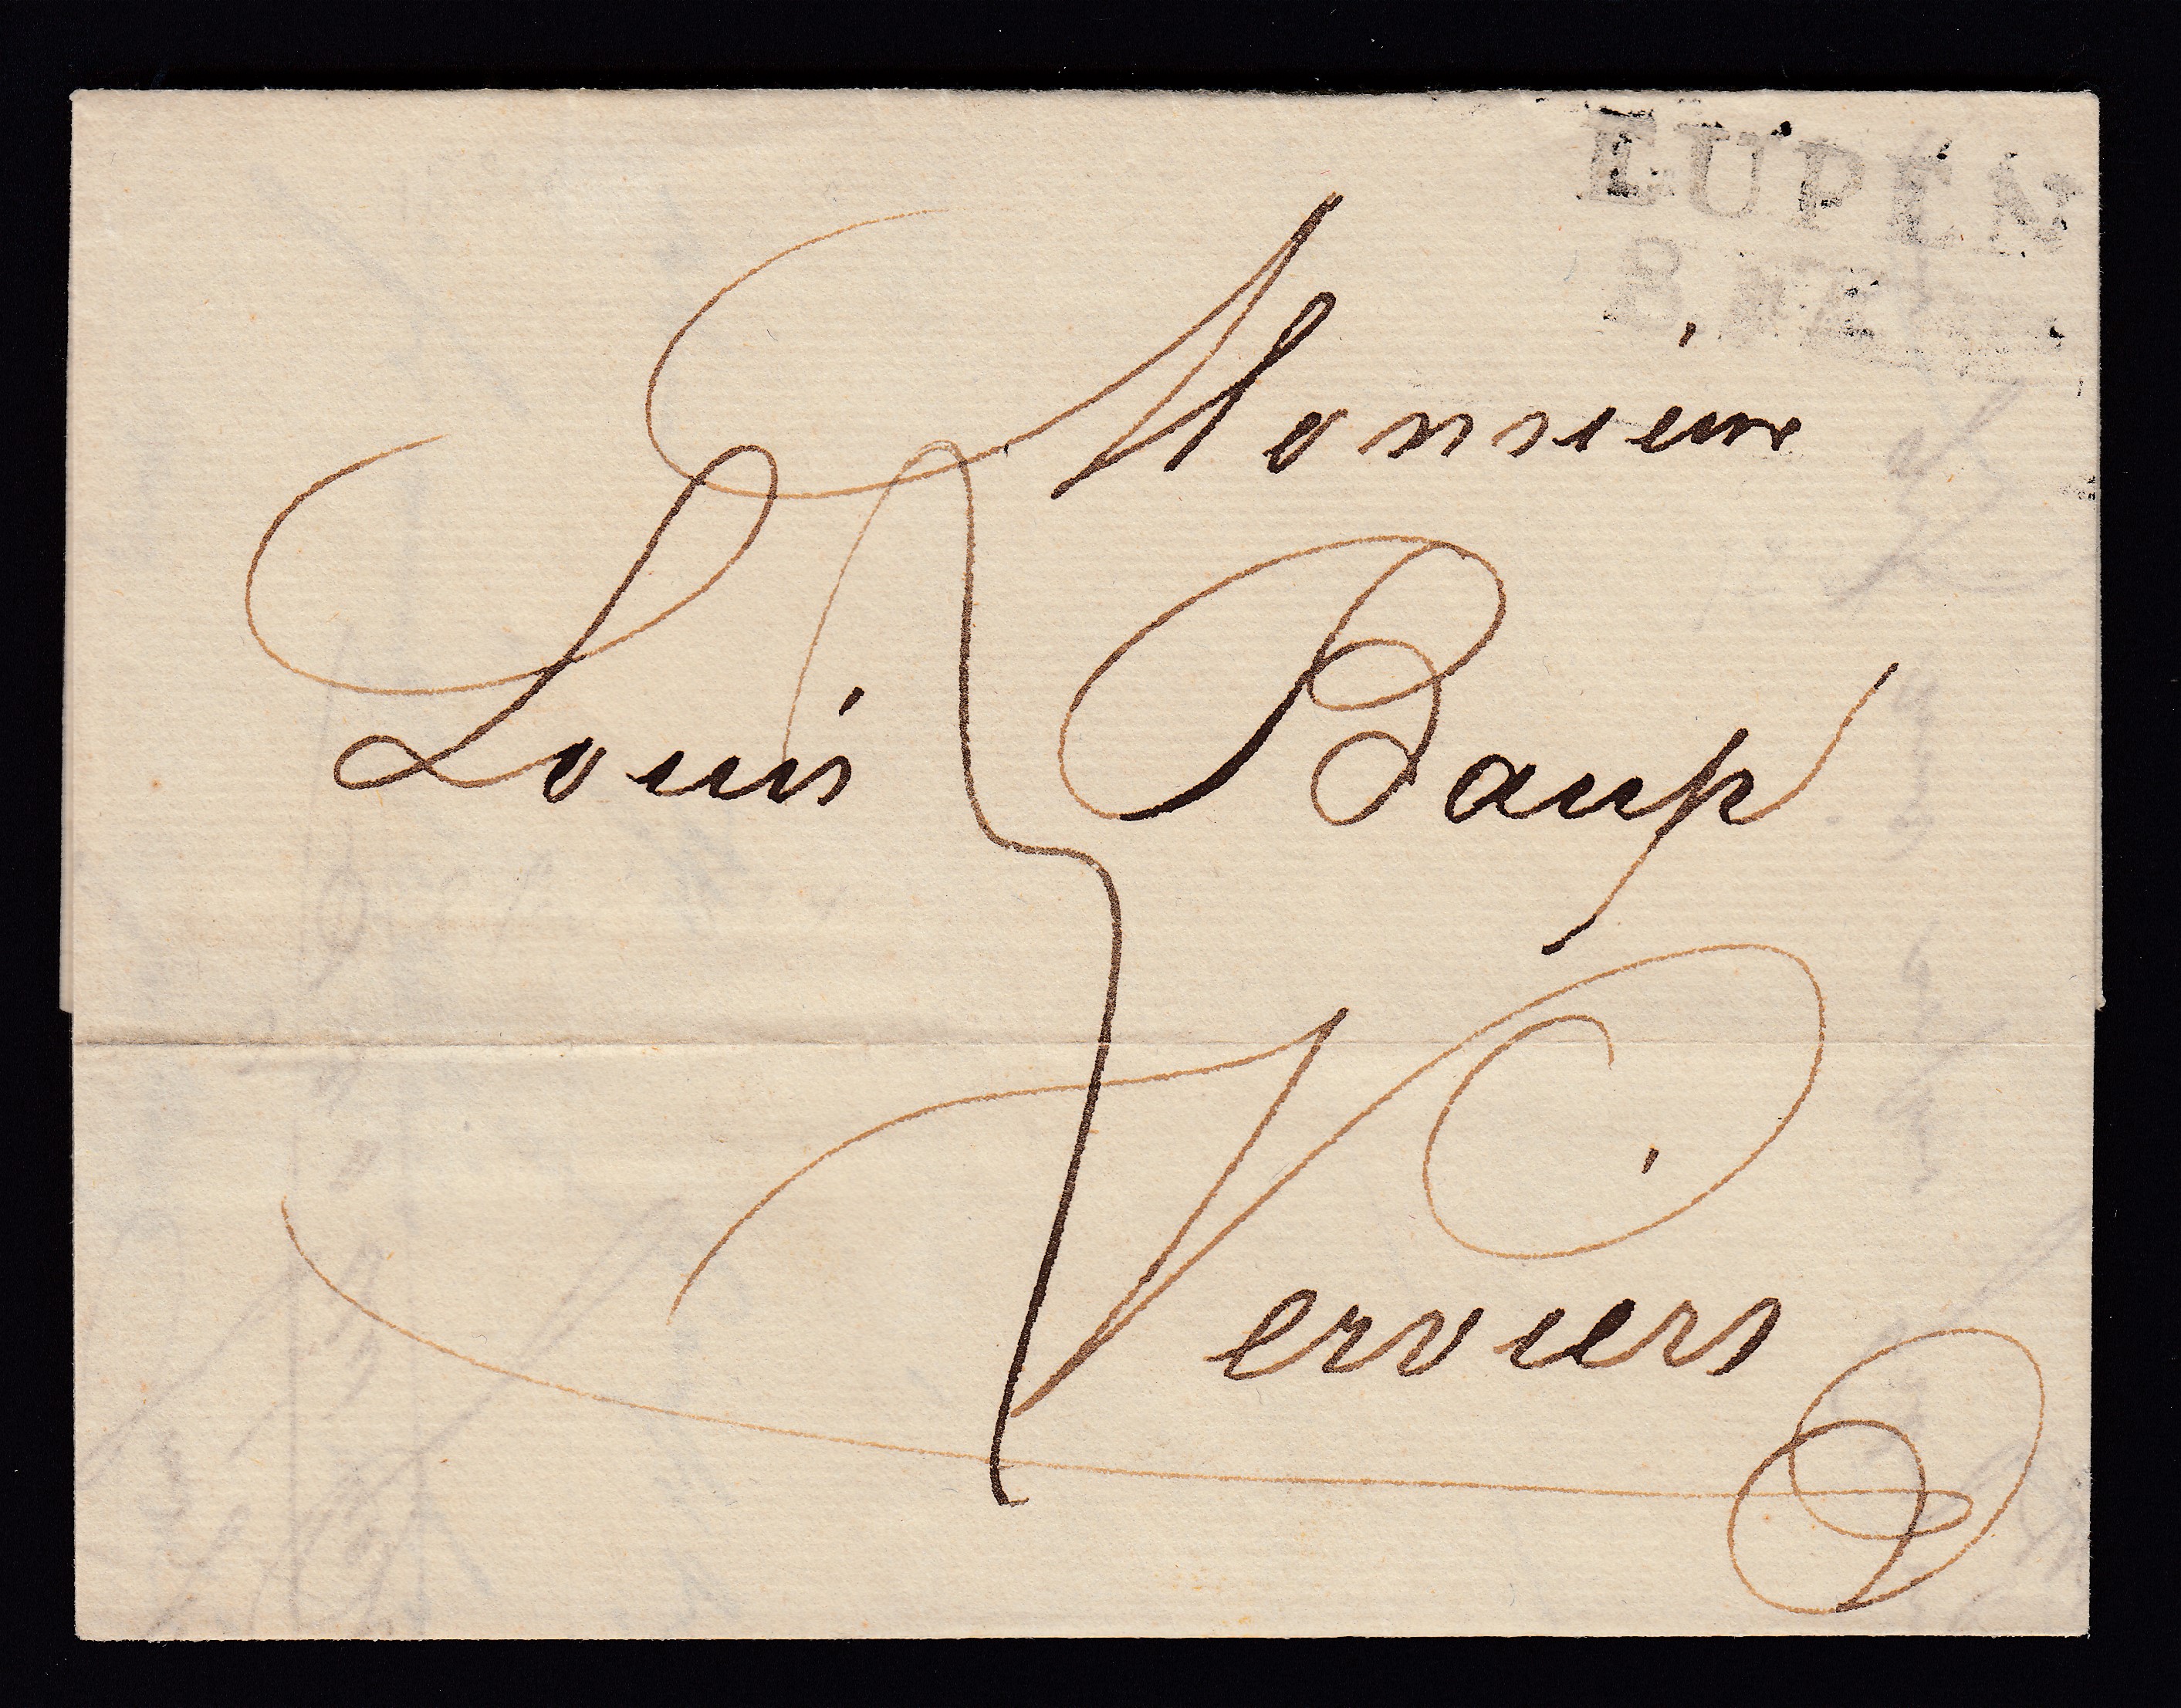 EUPEN
Monsieur
Louis Baup
Verviers